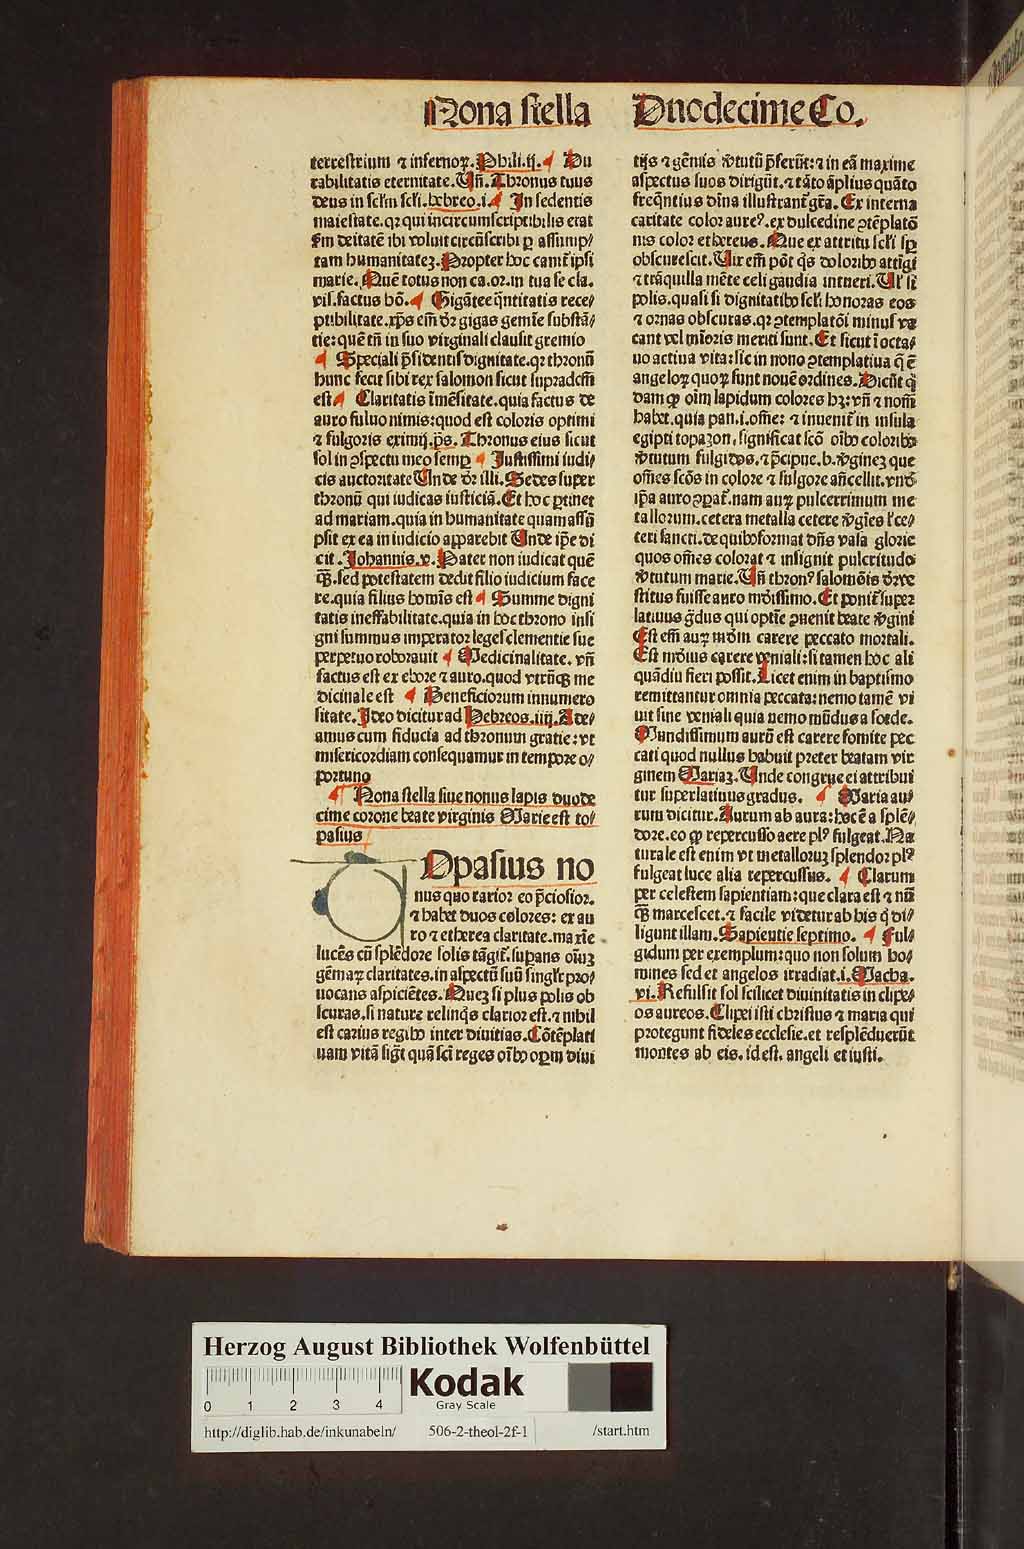 Nona stella Duodecime Co.
terrestrium ⁊ infernoꝝ. Phili.ij. Du
rabilitatis eternitate. Vñ. Thronus tuus
deus in sclm̃ scl̃i. hebreo.i. In sedentis
maiestate. qꝛ qui incircumscriptibilis erat
ẜm deitatẽ ibi voluit circũscribi ꝑ assump/
tam humanitateꝫ. Propter hoc cant̃ ipsi
marie. Quẽ totus non ca. or. in tua se cla.
vis. factus hõ. Gigãtee q̃ntitatis rece/
ptibilitate. xp̃s em̃ dr̃ gigas gemĩe substã/
tie: quẽ tñ in suo virginali clausit gremio
Speciali p̃sidentis dignitate. qꝛ thronũ
hunc fecit sibi rex salomon sicut supradcm̃
est Claritatis ĩmẽsitate. quia factus de
auro fuluo nimis: quod est coloris optimi
⁊ fulgoris eximij. p̃s. Thronus eius sicut
sol in ꝯspectu meo semꝑ Iustissimi iudi/
cis auctoritate Vnde dr̃ illi. Sedes super
thronũ qui iudicas iusticiã. Et hoc ꝑtinet
ad mariam. quia in humanitate quam assũ
psit ex ea in iudicio apparebit Vnde ip̃e di
cit. Johannis.v. Pater non iudicat quẽ
q̃ꝫ. sed potestatem dedit filio iudicium face
re. quia filius homĩs est Summe digni
tatis ineffabilitate. quia in hoc throno insi
gni summus imperator leges clementie sue
perpetuo roborauit Medicinalitate. vñ
factus est ex ebore ⁊ auro. quod vtrũqꝫ me
dicinale est Beneficiorum innumero
sitate. Ideo dicitur ad Hebreos.iiij. Ade/
amus cum fiducia ad thronum gratie: vt
misericordiam consequamur in tempore o/
portuno
Nona stella siue nonus lapis duode
cime corone beate virginis Marie est to/
pasius
Opasius no
nus quo rarior eo p̃ciosior.
⁊ habet duos colores: ex au
ro ⁊ etherea claritate. maxĩe
lucẽs cũ splẽdore solis tãgit̃. suꝑans oĩuꝫ
gẽmaꝝ claritates. in aspectũ suũ singl'r pro/
uocans aspiciẽtes. Queꝫ si plus polis ob
scuras. si nature relinq̃s clarior est. ⁊ nihil
est carius regibꝰ inter diuitias. Cõtẽplati
uam vitã sigt̃ quã scĩ reges oĩbꝰ opꝝ diui
tijs ⁊ gẽmis ṽtutũ p̃ferũt: ⁊ in eã maxime
aspectus suos dirigũt. ⁊ tãto ãplius quãto
freq̃ntius diĩna illustrant̃ gr̃a. Ex interna
caritate color aureꝰ. ex dulcedine ꝯtẽplatõ
nis color ethereus. Que ex attritu scl'i sꝑ
obscurescit. Vir em̃ põt q̃s doloribꝰ attĩgi
⁊ trãquilla mẽte celi gaudia intueri. Vl' si
polis. quasi si dignitatibꝰ scl'i honoras eos
⁊ ornas obscuras. qꝛ ꝯtemplatõi minus va
cant vel mĩoris meriti sunt. Et sicut ĩ octa/
uo actiua vita: sic in nono ꝯtemplatiua q̃ ẽ
angeloꝝ quoꝝ sunt nouẽ ordines. Dicũt q̃
dam ꝙ oĩm lapidum colores hꝫ: vñ ⁊ nomẽ
habet. quia pan. i. om̃e: ⁊ inuenit̃ in insula
egipti topazon. significat scõ oĩbꝰ coloribꝰ
ṽtutum fulgidos. ⁊ p̃cipue. b. ṽgineꝫ que
om̃es scõs in colore ⁊ fulgore ãncellit.
ip̃a auro ꝯꝑat̃. nam auꝝ pulcerrimum me
tallorum. cetera metalla cetere ṽgĩes
teri sancti. de quibꝰ format dñs vasa glorie
quos om̃es colorat ⁊ insignit pulcritudo
ṽtutum marie. Vñ thronꝰ salomõis
stitus fuisse auro mũdissimo. Et ponit̃ super
latiuus g̃dus qui optĩe ꝯuenit beate ṽgini
Est em̃ auꝝ mũdũ carere peccato mortali.
Est mũdius carere veniali: si tamen hoc ali
quãdiu fieri possit. Licet enim in baptismo
remittantur omnia peccata: nemo tamẽ vi
uit sine veniali quia nemo mũdus a sorde.
Mundissimum aurũ est carere fomite pec
cati quod nullus habuit preter beatam vir
ginem Mariaꝫ. Vnde congrue ei attribui
tur superlatiuus gradus. Maria au/
rum dicitur. Aurum ab aura: hoc ẽ a splẽ/
dore. eo ꝙ repercusso aere plꝰ fulgeat. Na
turale est enim vt metalloruꝫ splendor plꝰ
fulgeat luce alia repercussus. Clarum
per celestem sapientiam: que clara est ⁊ nũ
q̃ꝫ marcescet. ⁊ facile videtur ab his q̃ di/
ligunt illam. Sapientie septimo. Ful/
gidum per exemplum: quo non solum ho/
mines sed et angelos irradiat. i. Macha.
vi. Refulsit sol scilicet diuinitatis in clipe/
os aureos. Clipei isti christus ⁊ maria qui
protegunt fideles ecclesie. et resplẽduerũt
montes ab eis. id est. angeli et iusti.
Herzog August Bibliothek Wolfenbüttel
0 1 2 3 4
Kodak
Gray Scale
http://diglib.hab.de/inkunabeln/ 506-2-theol-2f-1 /start.htm